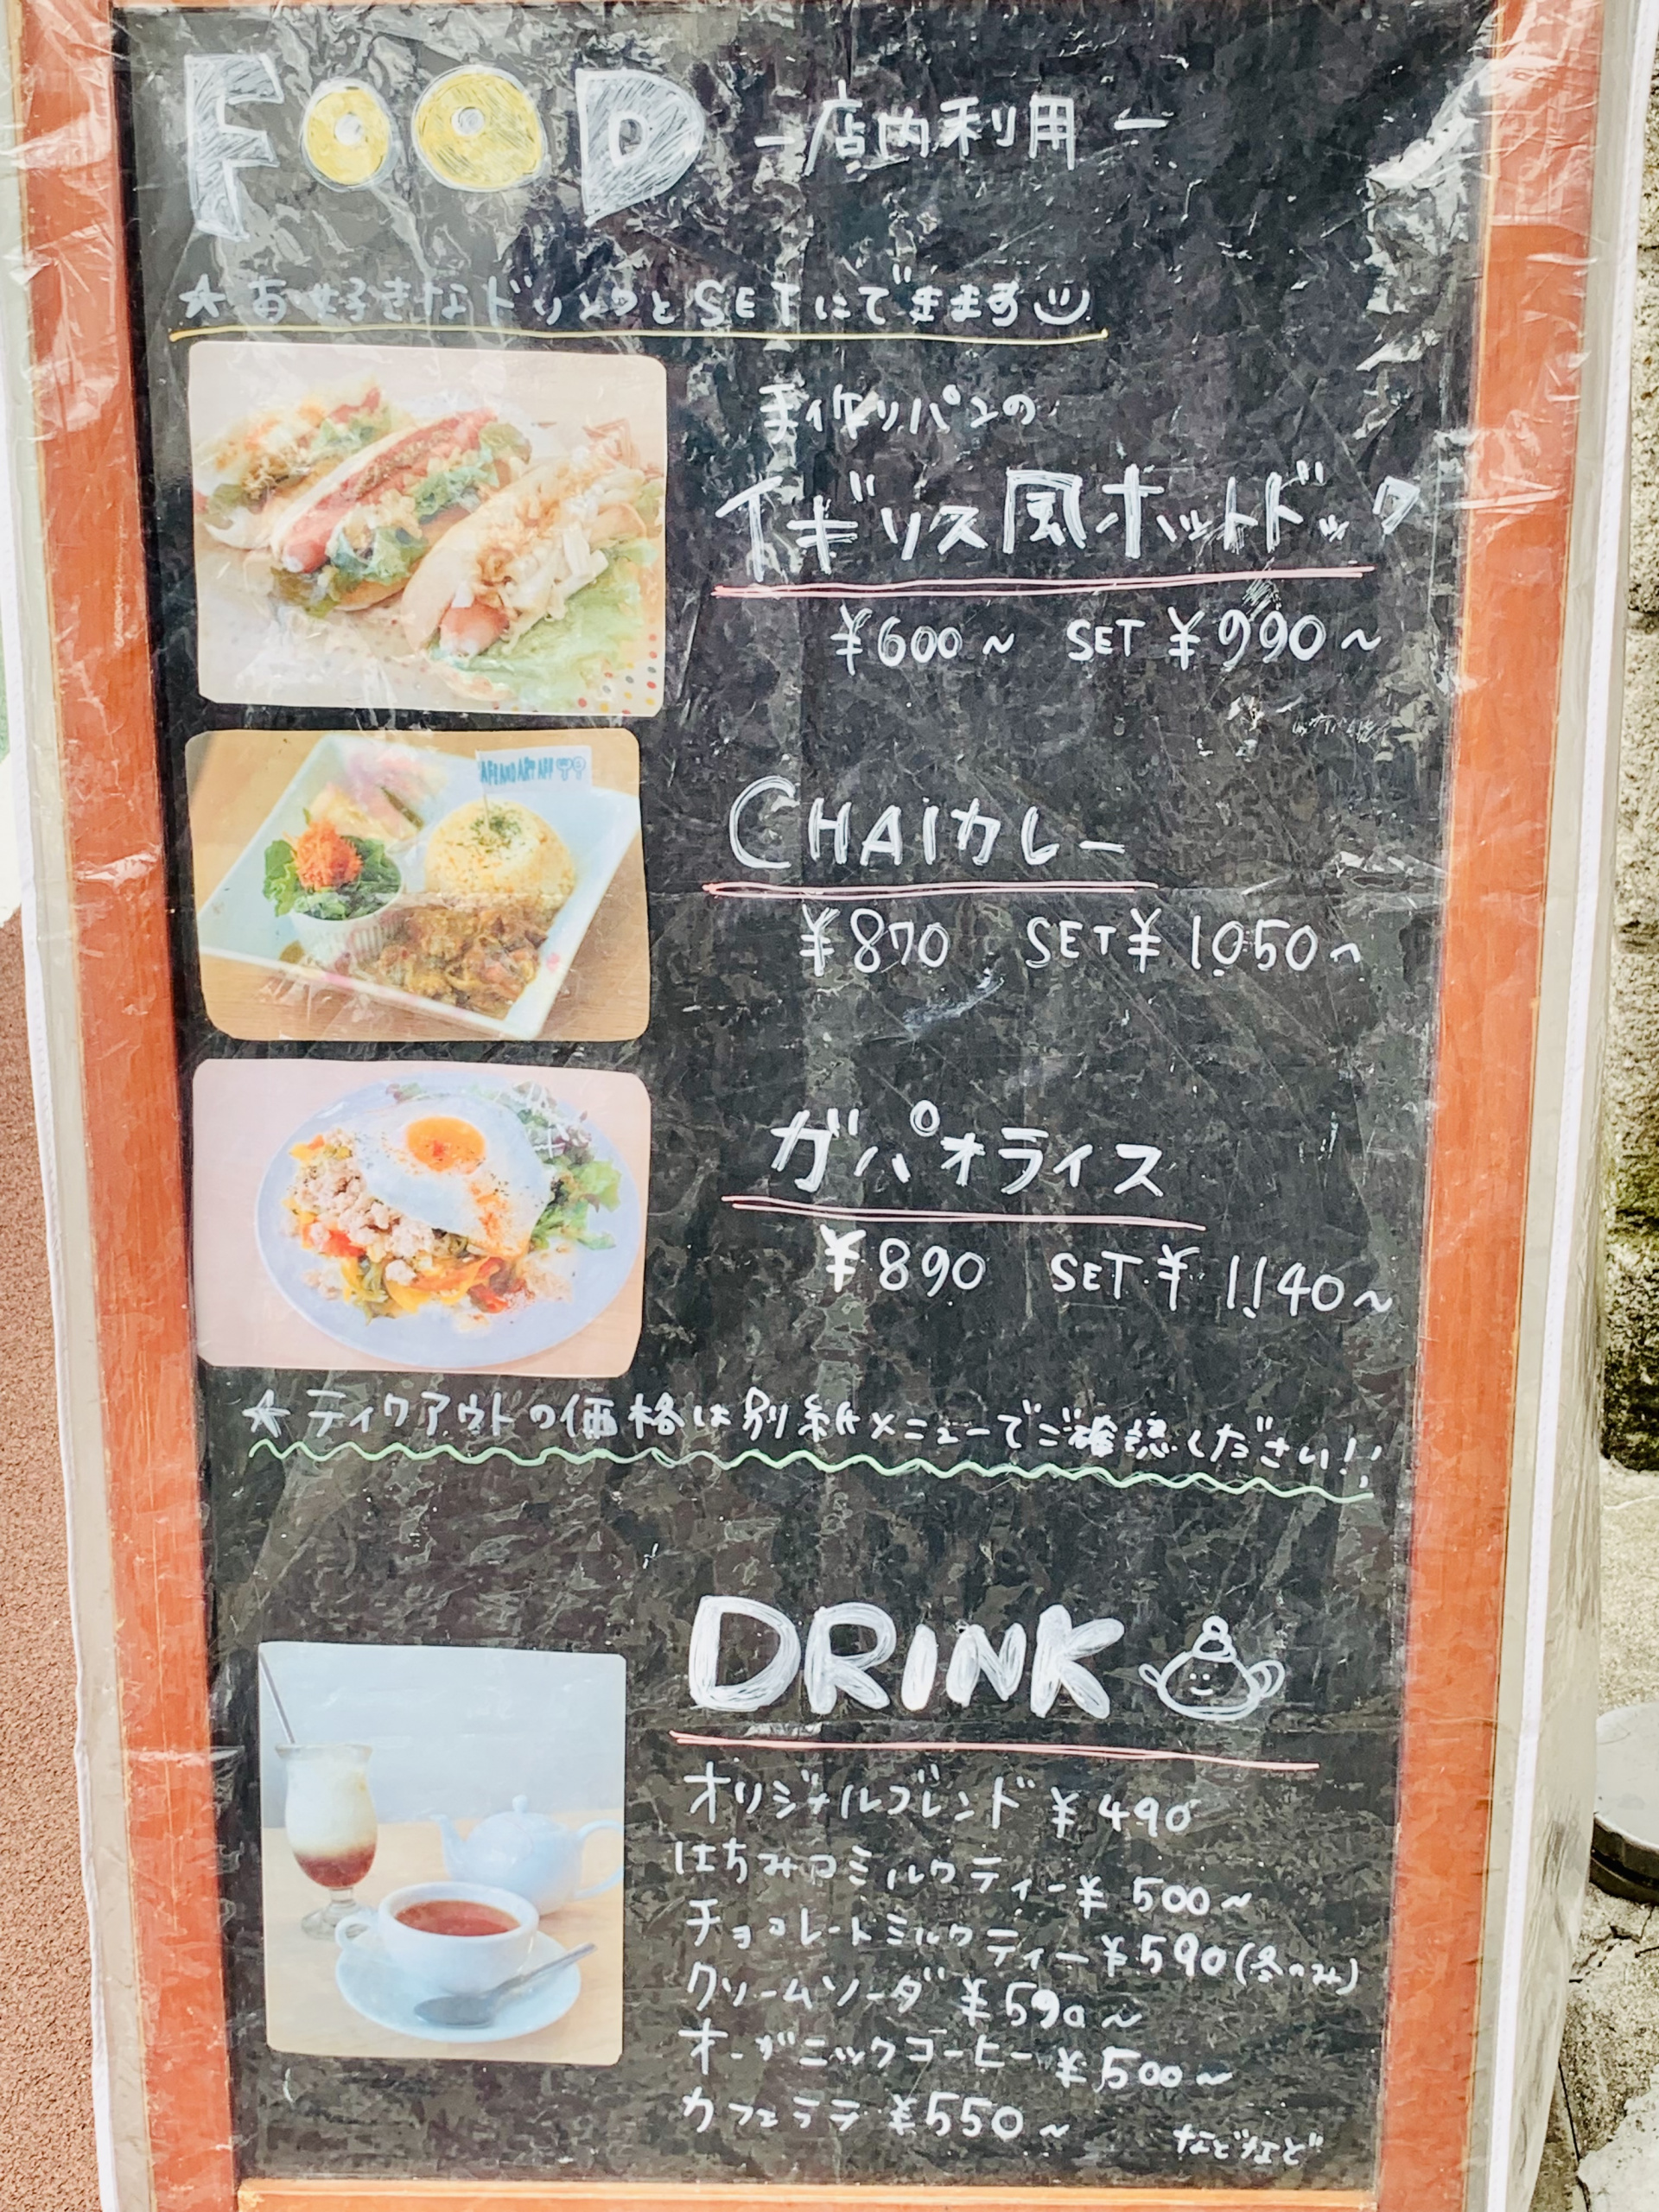 FOOD －店内利用－
☆お好きなドリンクとSETにできます
手作りパンの
イギリス風ホットドック
¥600～ SET ¥990～
CHAIカレー
¥870 SET ¥1,050～
ガパオライス
¥890 SET ¥1,140～
☆テイクアウトの価格は別紙メニューでご確認ください!!
DRINK
オリジナルブレンド ¥490
はちみつミルクティー ¥500～
チョコレートミルクティー ¥590(冬のみ)
クリームソーダ ¥590～
オーガニックコーヒー ¥500～
カフェラテ ¥550～
などなど